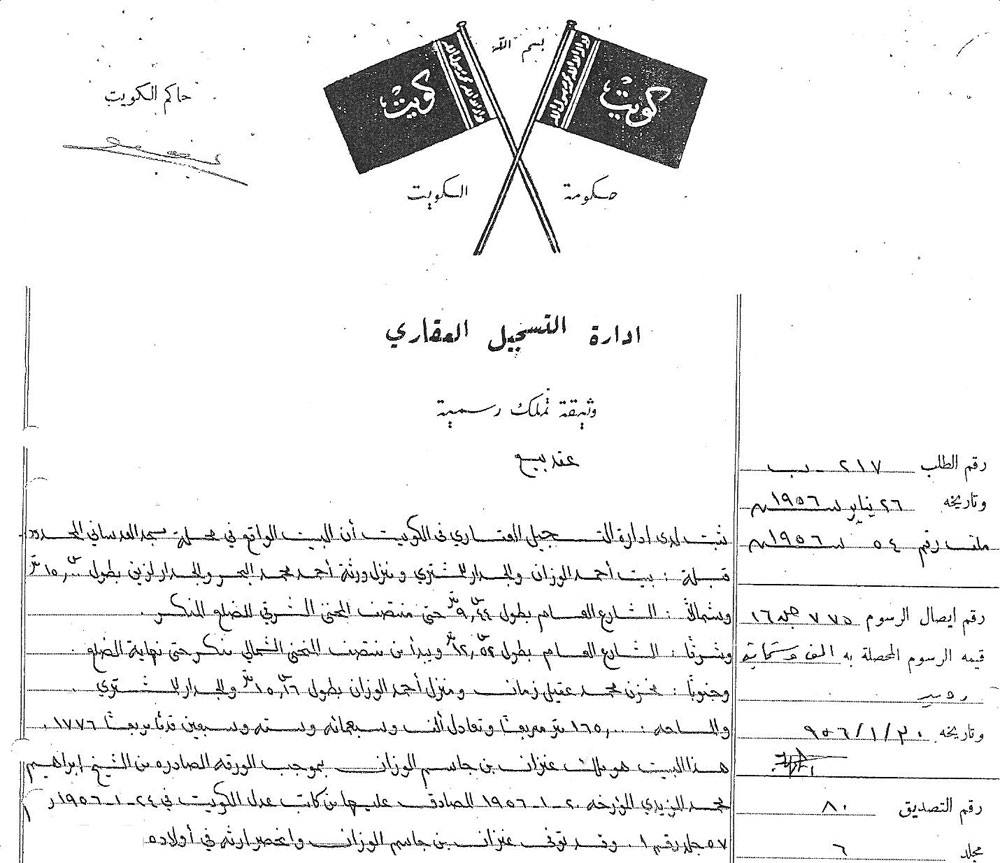 بسم الله
حاكم الكويت
كويت
لا اله الا الله محمد رسول الله
كويت
لا اله الا الله محمد رسول الله
حكومة الكويت
ادارة التسجيل العقاري
وثيقة تملك رسمية
عقد بيع
رقم الطلب ٢١٧ - ب
وتاريخه ٢٦ يناير سنة ١٩٥٦م
ملف رقم ٥٤ سنة ١٩٥٦م
رقم ايصال الرسوم ٧٧٥ ص ١٦
قيمه الرسوم المحصلة به الف وستمايه
روبيه
وتاريخه ٣٠/١/٩٥٦
رقم التصديق ٨٠
مجلد ٦
ثبت لدى إدارة التسجيل العقاري في الكويت أن البيت الواقع في محلة مسجد العدساني المحدود
قبلة : بيت أحمد الوزان والجدار للمشتري ومنزل ورثة أحمد محمد البحر والجدار لزين بطول ١٥,٠٠ متر
وشمالاً : الشارع العام بطول ٩,٤٤ متر حتى منتصف المنحنى الشرقي للضلع المذكور .
وشرقاً : الشارع العام بطول ١٢,٥٤ متر ويبدأ من منتصف المنحنى الشمالي المذكور حتى نهاية الضلع .
وجنوباً : مخزن محمد عقيل زمان ومنزل أحمد الوزان بطول ١٥,١٦ متر والجدار للمشتري .
والمساحه : ١٦٥,٠٠ متر مربعاً وتعادل ألف وسبعمائه وسته وسبعين قدماً مربعاً ١٧٧٦ .
هذا البيت هو ملك عنزان بن جاسم الوزان بموجب الورقه الصادره من الشيخ ابراهيم
محمد المزيدي المؤرخه ٢٠-١-١٩٥٦ المصادق عليها من كاتب عدل الكويت في ٢٤-١-١٩٥٦
٥٧ جلد رقم ١ . وقد توفى عنزان بن جاسم الوزان وانحصر ارثه في أولاده